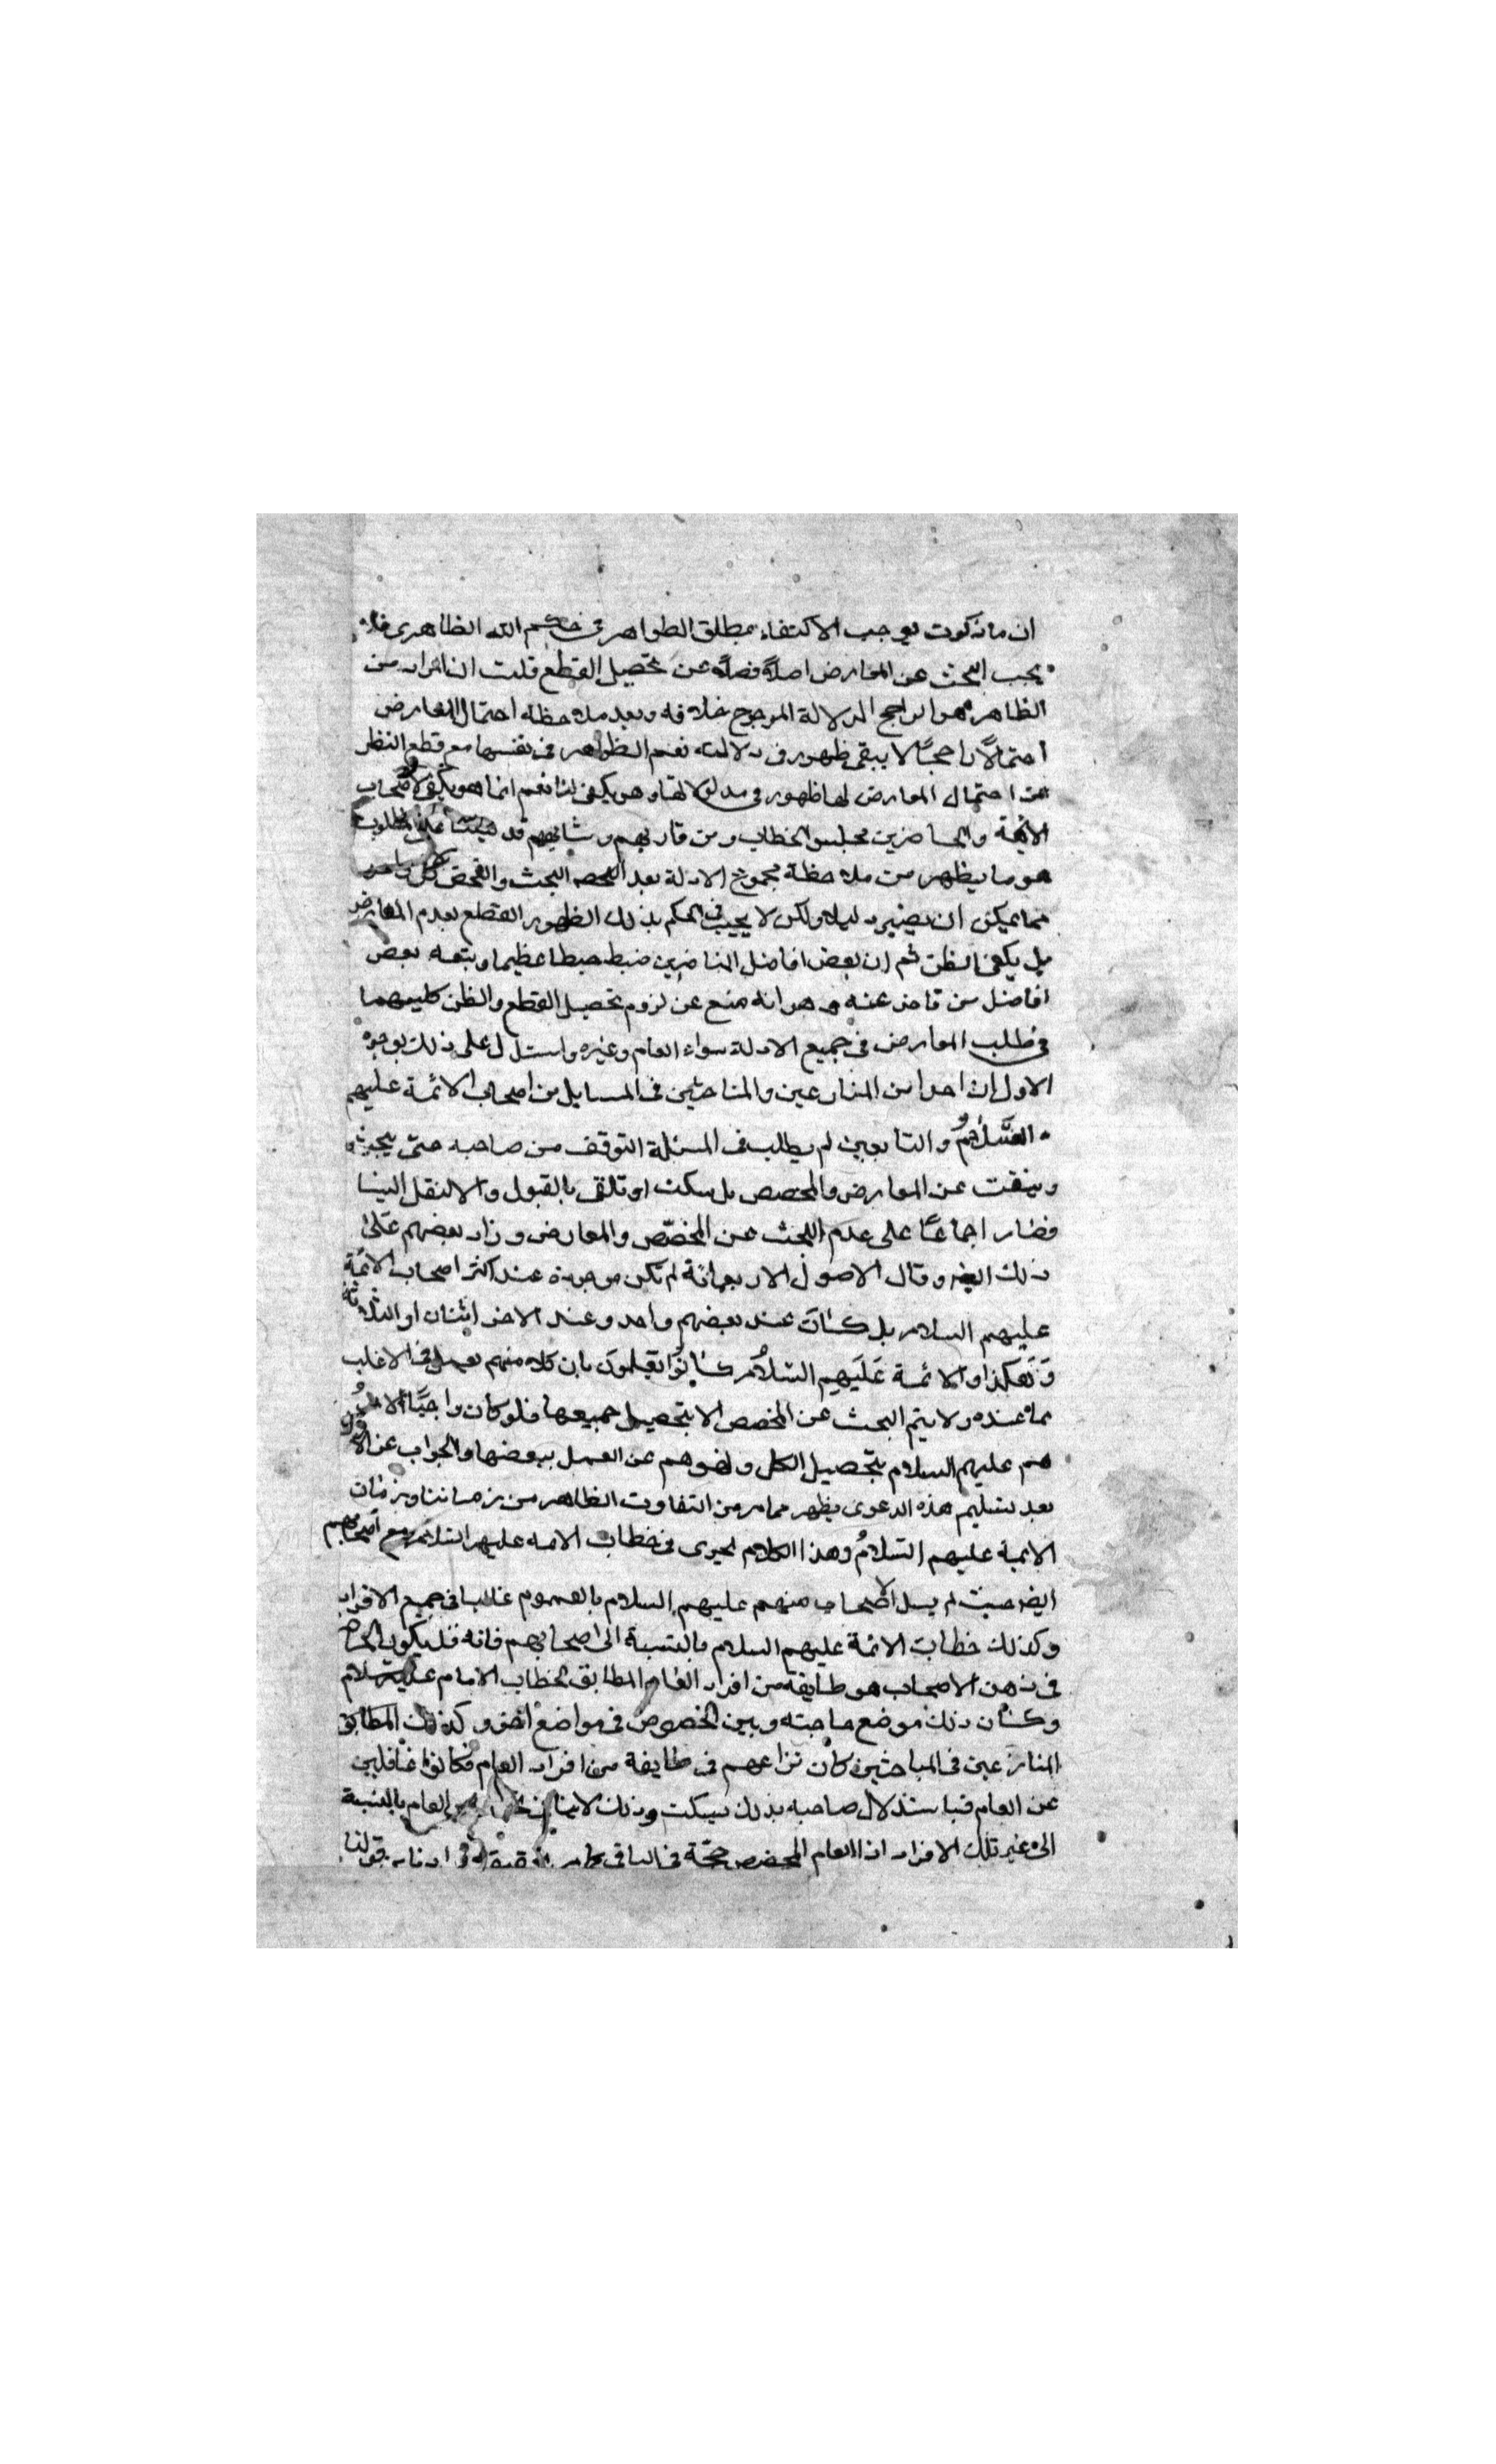 ان ما ذكرت يوجب الاكتفاء بمطلق الظواهر في حكم الله الظاهرى فلا
يجب البحث عن المعارض اصلا فضلا عن تحصيل القطع قلت ان المراد من
الظاهر هو الراجح الدلالة المرجوح خلافه وبعد ملاحظة احتمال المعارض
احتمالًا راجحًا لا يبقى ظهور في دلالته نعم الظواهر في نفسها مع قطع النظر
عن احتمال المعارض لها ظهور في مدلولاتها وهو يكفى لنا نعم انما هو يكفى لاصحاب
الائمة والحاضرين مجلس الخطاب ومن قاربهم وشابههم قد المطلوب
هو ما يظهر من ملاحظة مجموع الادلة بعد البحث والفحص كل واحد
مما يمكن ان يصير دليلا ولكن لا يجب في الحكم بذلك الظهور القطع بعدم المعارض
بل يكفى الظن ثم ان بعض افاضل المتاخرين خبط خبطا عظيما وتبعه بعض
افاضل من تاخر عنه وهو انه منع عن لزوم تحصيل القطع والظن كليهما
في طلب المعارض في جميع الادلة سواء العام وغيره واستدل على ذلك بوجوه
الاول ان احدا من المتنازعين والمتباحثين في المسايل من اصحاب الائمة عليهم
السلام والتابعين لم يطلب في المسئلة التوقف من صاحبه حتى يبحث
ويفتش عن المعارض والمخصص بل سكت او تلقى بالقبول والا لنقل الينا
فصار اجماعًا على عدم البحث عن المخصّص والمعارض وزاد بعضهم على
ذلك ايضا وقال الاصول الاربعمائة لم تكن موجودة عند اكثر اصحاب الائمة
عليهم السلام بل كانت عند بعضهم واحد وعند الاخر اثنان او الثلاثة
وَهكذا والائمة عَلَيهِم السّلامُ كانُوا يَعلمونَ بان كلا منهم يعمل في الاغلب
بما عنده ولا يتم البحث عن المخصص الا بتحصيل جميعها فلو كان واجبًا لامرُو
هم عليهم السلام بتحصيل الكل ونهوهم عن العمل ببعضها والجواب عن الاول
بعد تسليم هذه الدعوى يظهر مما مر من التفاوت الظاهر من زماننا وزمان
الايمة عليهم السّلامُ وهذا الكلام يجرى في خطاب الائمه عليهم السّلام مع اصحابهم
ايضا حيث لم يسل الاصحاب منهم عليهم السلام بالعموم غالبا في جميع الافراد
وكذلك خطاب الائمة عليهم السلام بالنسبة الى اصحابهم فانه قد يكون الحاضر
في ذهن الاصحاب هو طايفة من افراد العام المطابق لخطاب الامام عليه السلام
وكان ذلك موضع حاجته وبين الخصوص في مواضع اخر وكذلك المطابق
المتنازعين في المباحثين كان نزاعهم في طايفة من افراد العام فكانوا غافلين
عن العام فباستدلال صاحبه بذلك يسكت وذلك لا العام بالنسبة
الى غير تلك الافراد اذ العام المخصص حجّة في الباقى قولنا